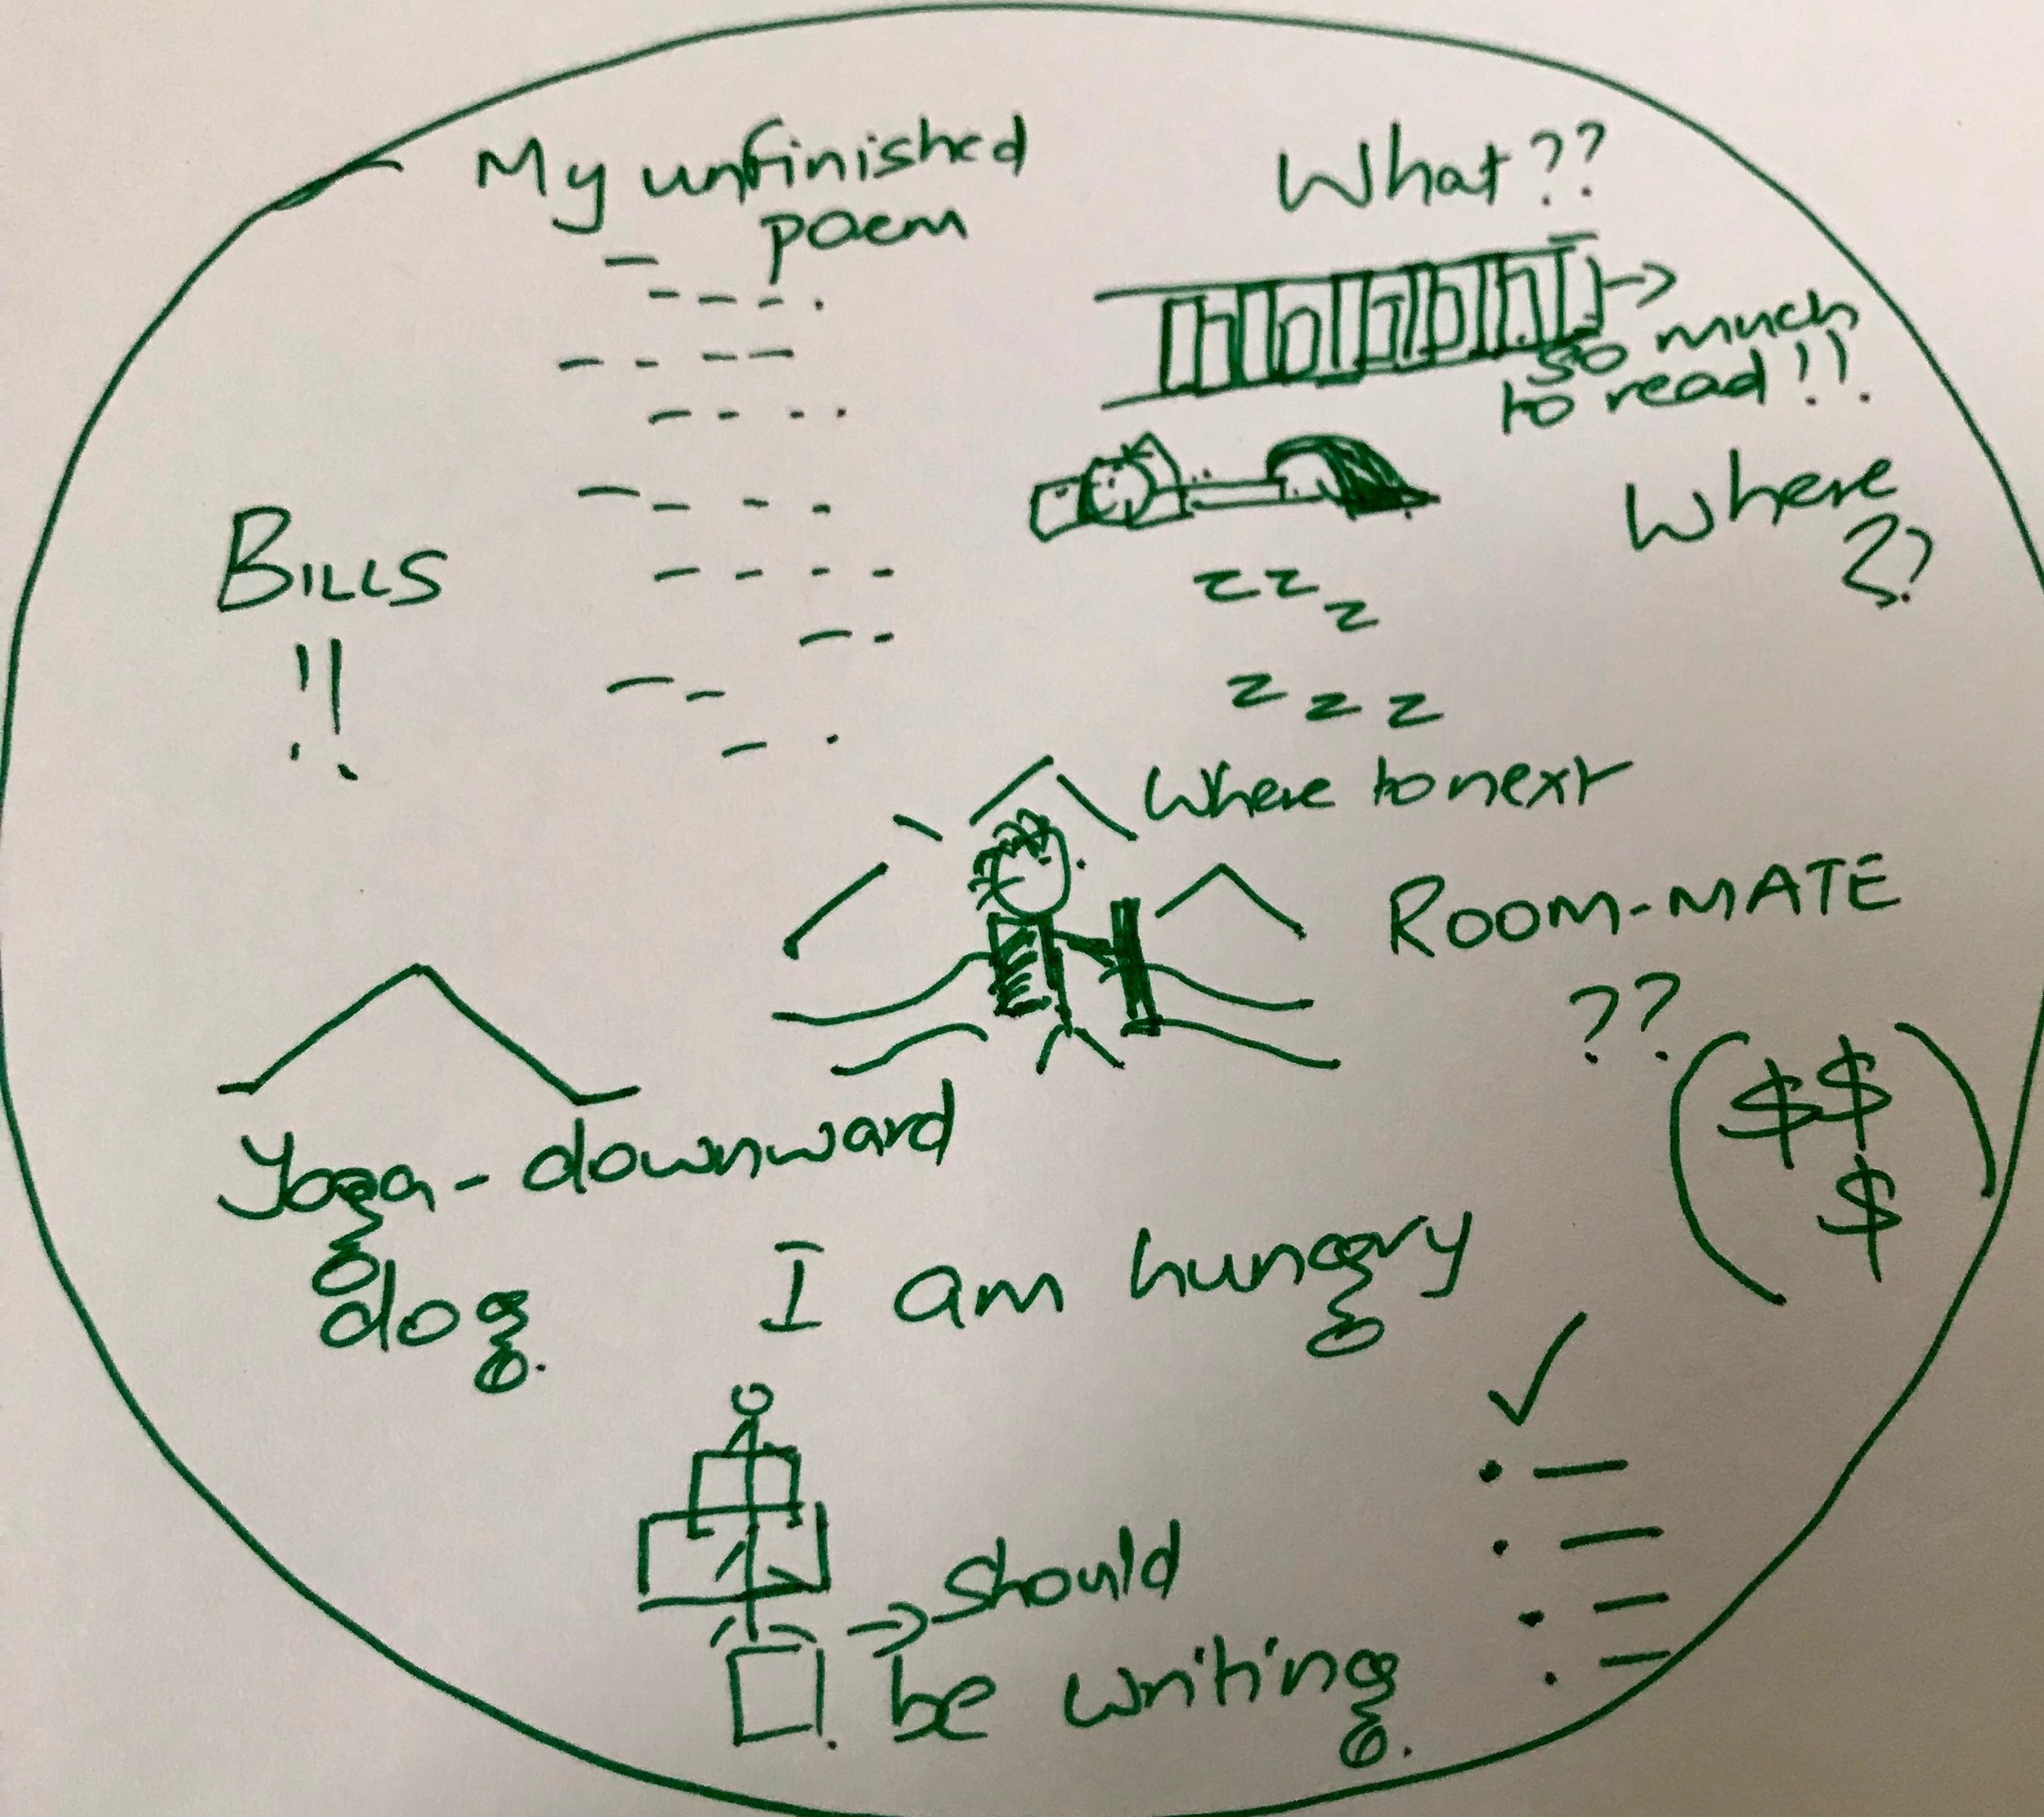 My unfinished
poem
What??
so much
to read!!
Where
??
BILLS
!!
zz
z
z z z
Where to next
ROOM-MATE
??
($$
$)
Yoga - downward
dog.
I am hungry
→ should
be writing.